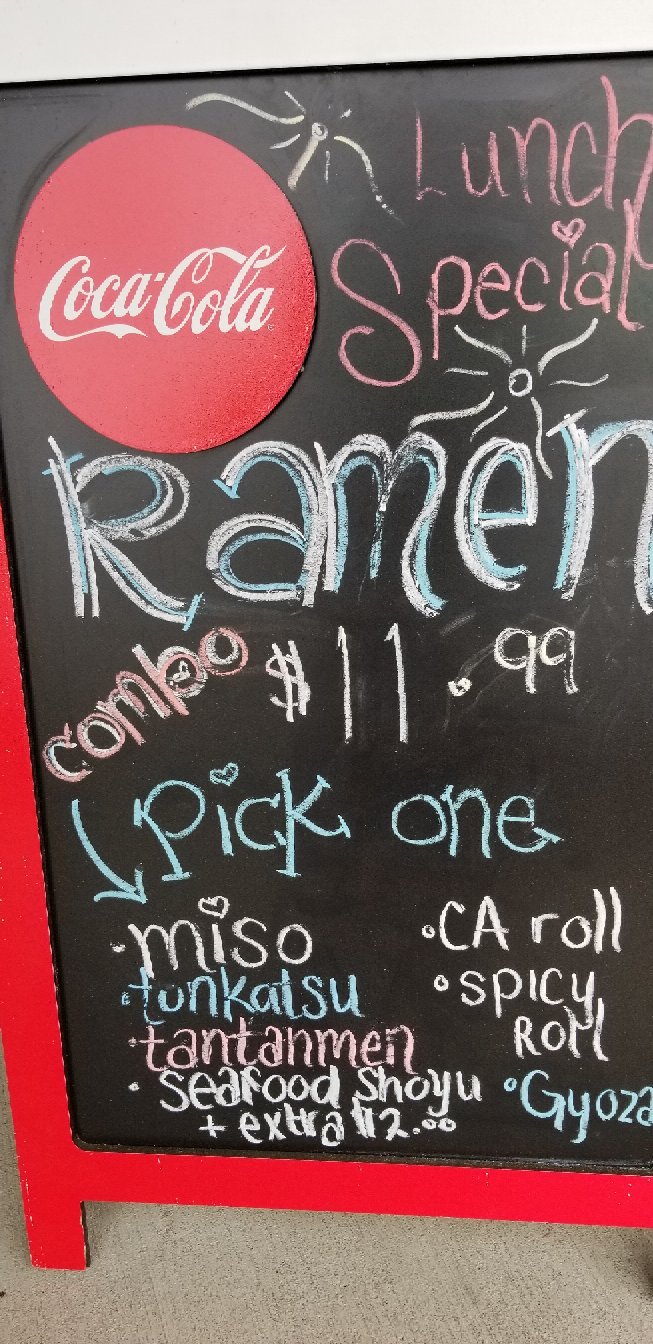 Coca-Cola
Lunch
Special
Ramen
combo $11.99
Pick one
• miso
• tonkatsu
• tantanmen
• Seafood Shoyu
+ extra $2.00
• CA roll
• spicy
Roll
• Gyoza